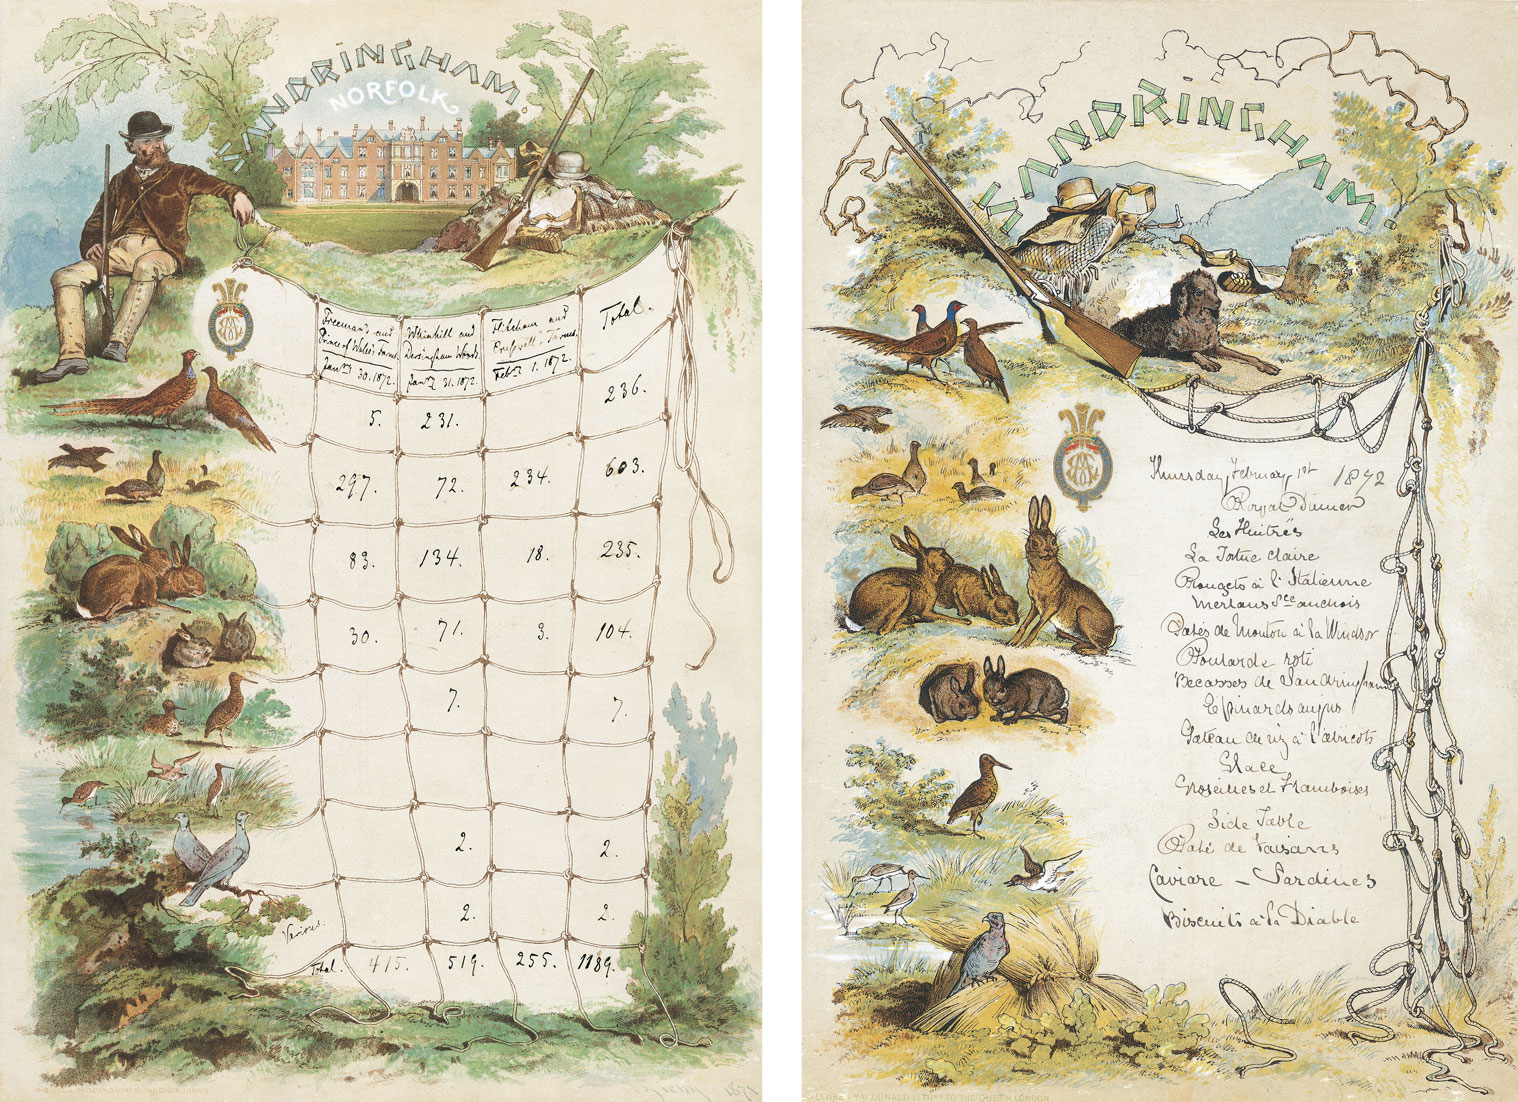 SANDRINGHAM.
NORFOLK.
Freeman's and
Prince of Wales's Farms.
Jany 30. 1872.
Whinhill and
Dersingham Woods.
Jany 31. 1872.
Flitcham and
Farms.
Feby 1. 1872.
Total.
5. 231. 236.
297. 72. 234. 603.
83. 134. 18. 235.
30. 71. 3. 104.
7. 7.
2. 2.
Various. 2. 2.
Total. 415. 519. 255. 1189.
SANDRINGHAM.
Thursday February 1st 1872
Royal Dinner
Les Huitrës
La Tortue claire
Rougets à l'Italienne
Merlans Sce anchois
Patés de Mouton à la Windsor
Poularde roti
Becasses de Sandringham
Epinards au jus
Gateau de riz à l'abricots
Glace
Groseilles et Framboises
Side Table
Paté de Faisans
Caviare - Sardines
Biscuits à la Diable
MACDONALD LITHRS TO THE QUEEN LONDON